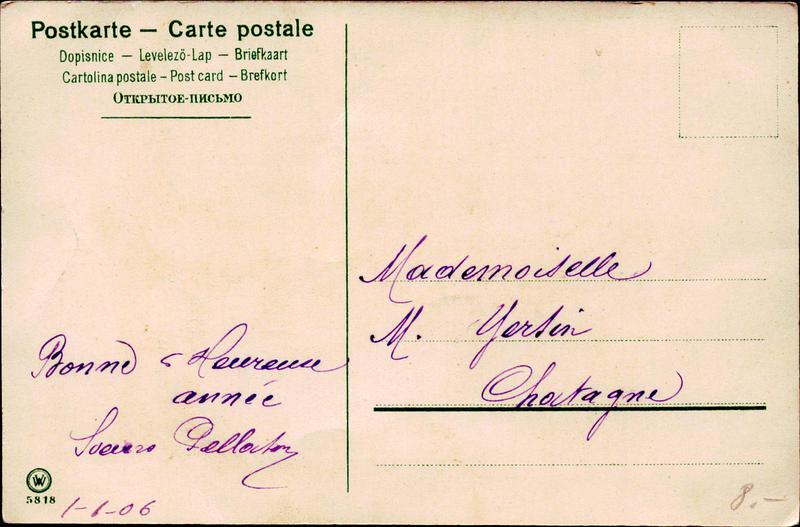 Postkarte — Carte postale
Dopisnice — Levelező-Lap — Briefkaart
Cartolina postale – Post card – Brefkort
Открытое-письмо
Mademoiselle
M. Yersin
Chatagne
Bonne & Heureuse
année
Soeurs Pellaton
W
5818
1-1-06
8.-